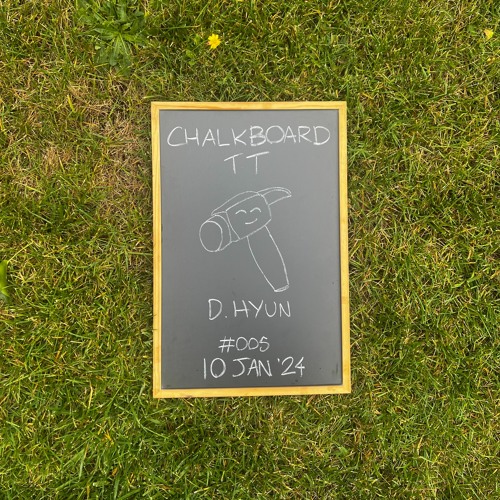 CHALKBOARD
TT
D. HYUN
#005
10 JAN '24